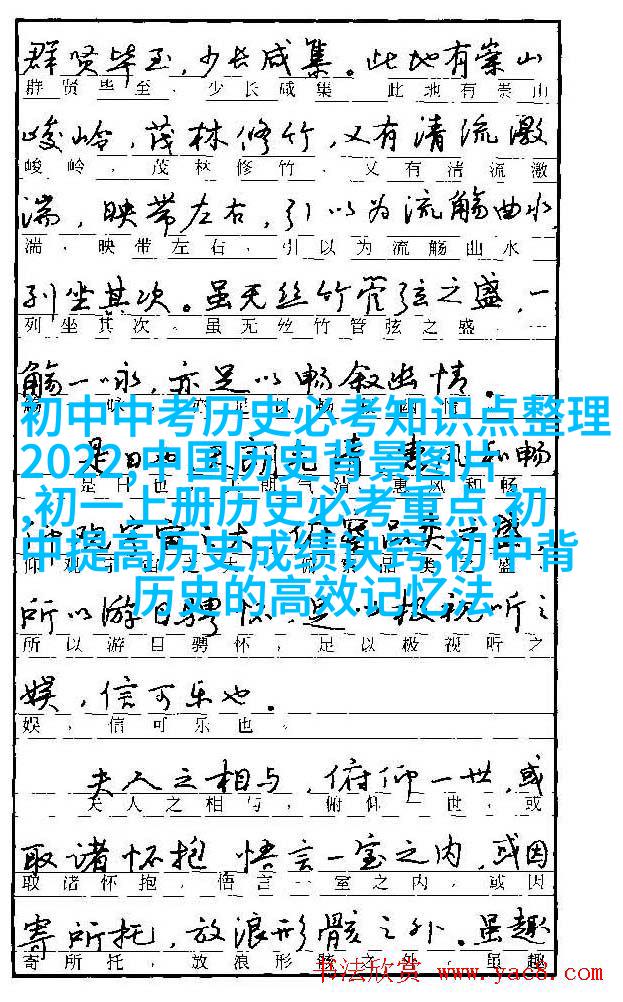 群贤毕至,少长咸集。此地有崇山
群贤毕至,少长咸集 此地有崇山
峻岭,茂林修竹,又有清流激
峻岭,茂林修竹,又有清流激
湍,映带左右,引以为流觞曲水,
湍,映带左右,引以为流觞曲水
列坐其次。虽无丝竹管弦之盛,一
列坐其次。虽无丝竹管弦之盛,一
觞一咏,亦足以畅叙幽情。
初中中考历史必考知识点整理
2022,中国历史背景图片
,初一上册历史必考重点,初
中提高历史成绩诀窍,初中背
历史的高效记忆法
是日也 惠风和畅
是日也 气清 惠风和畅
仰观 品类之盛
所以游目骋怀,足以极视听之
所以游目骋怀,足以极视听之
娱,信可乐也。
娱,信可乐也。
夫人之相与,俯仰一世,或
夫人之相与,俯仰一世,或
取诸怀抱 悟言一室之内,或因
取诸怀抱,悟言一室之内,或因
寄所托,放浪形骸之外。虽趣
寄所托,放浪形骸之外。虽趣
书法欣赏 www.yac8.com